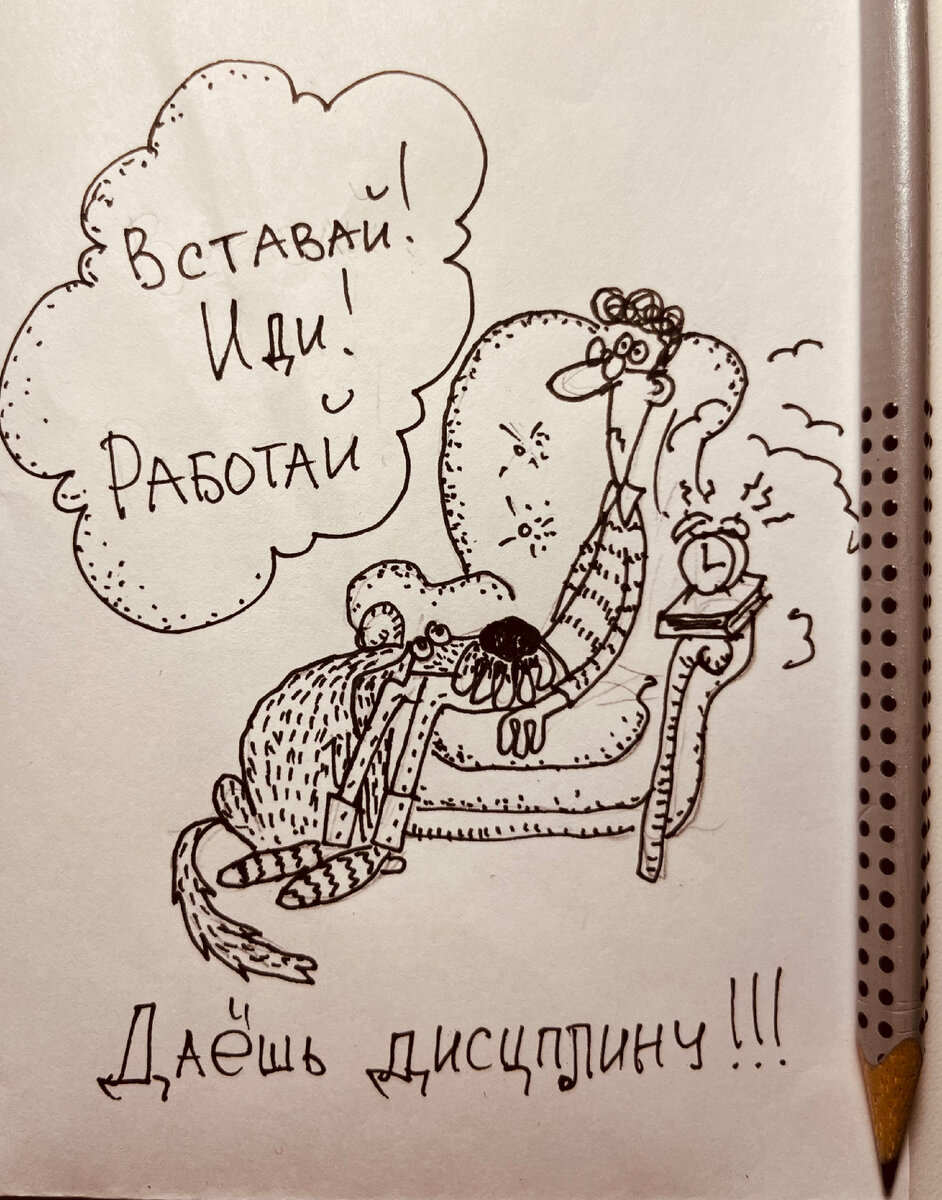 Вставай!
Иди!
Работай
Даёшь дисциплину!!!